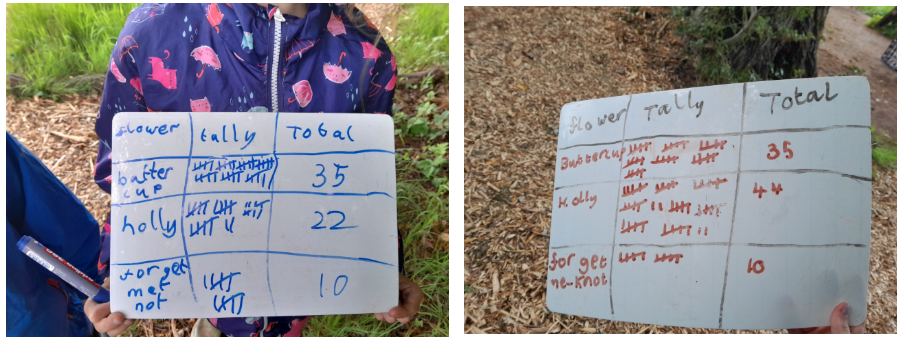 flower tally Total
butter
cup 35
holly 22
for get
me t
not 10
flower Tally Total
Buttercup 35
Holly 44
for get
me-knot 10